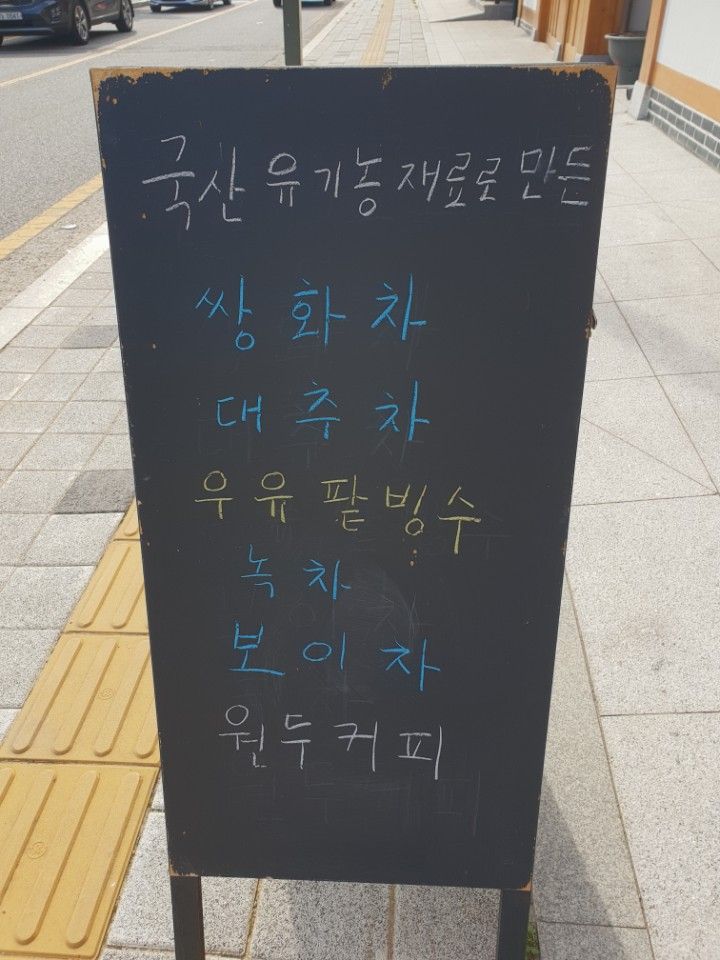 국산 유기농 재료로 만든
쌍화차
대추차
우유팥빙수
녹차
보이차
원두커피